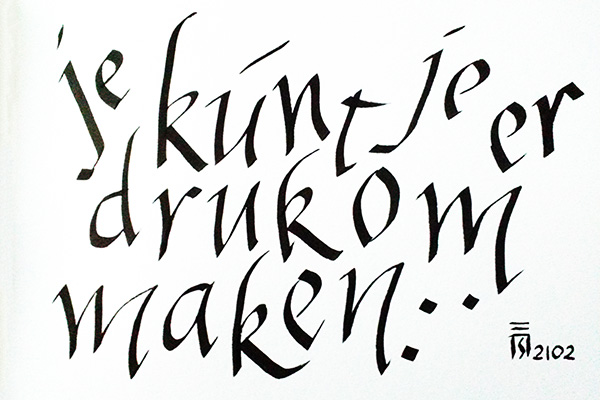 je kúnt je er
druk om
maken...
2102